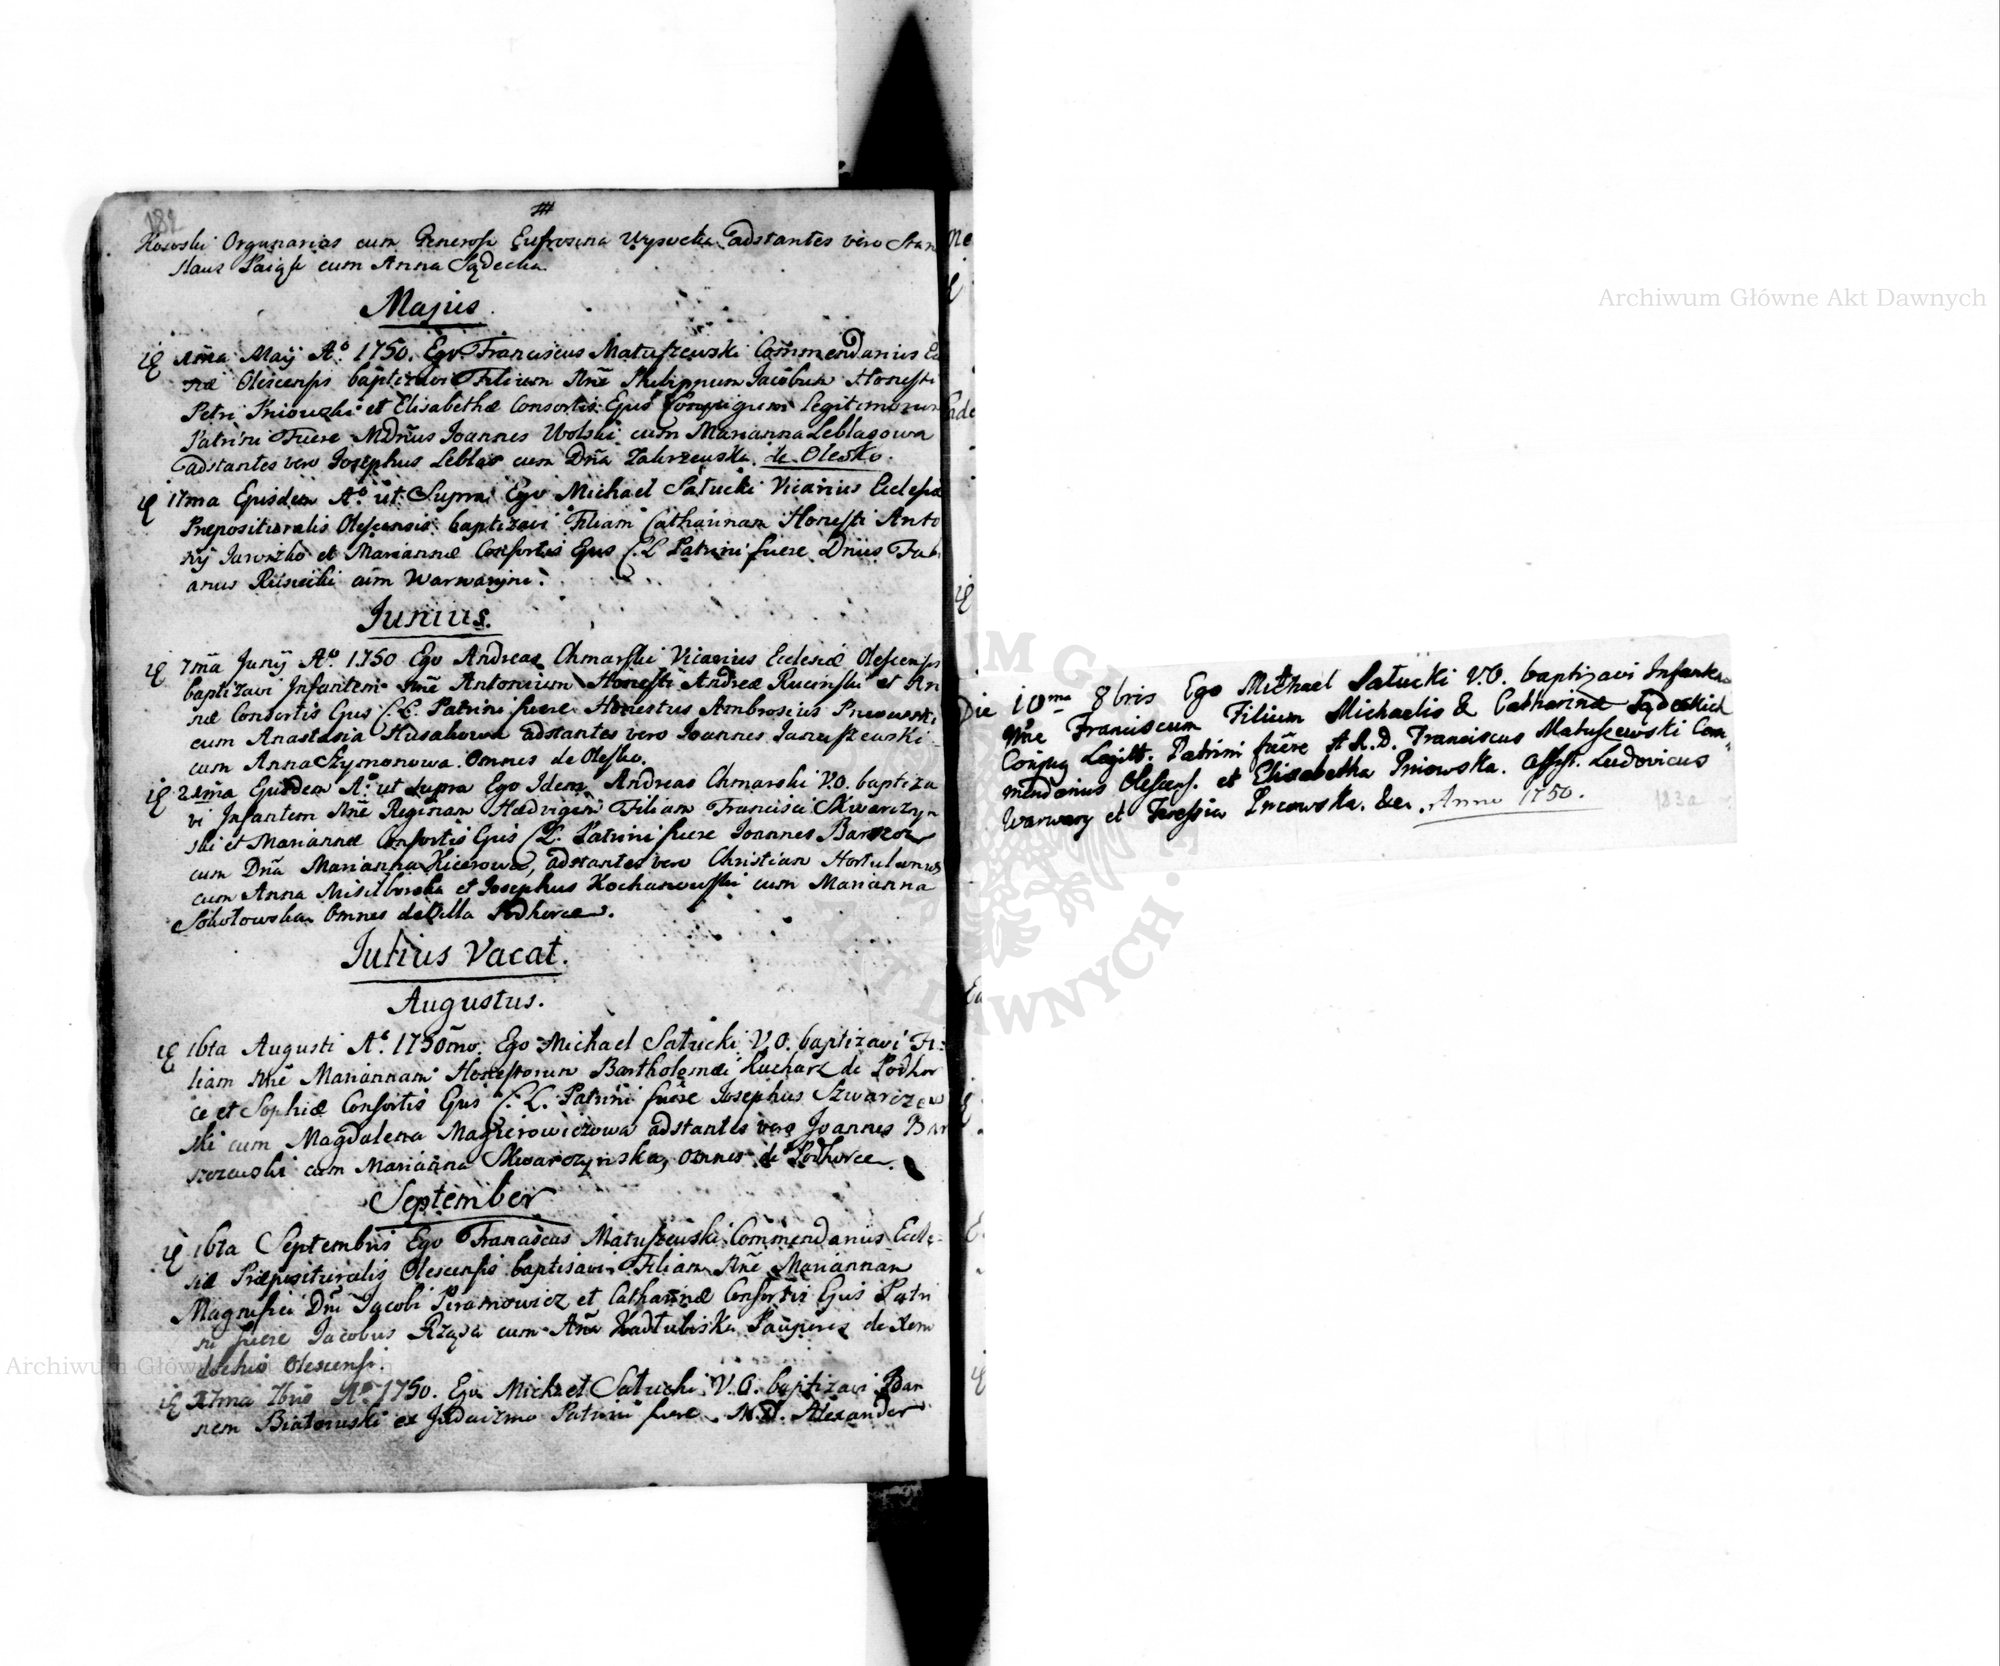 182
Kososki Organarius cum Generosa Eufrosina Wysocka adstantes vero Stanis
laus Paigk cum Anna Sądecka
Majus.
1ma Maij Aº 1750. Ego Franciscus Matuszewski Commendarius Ec
siæ Olescensis baptizavi Filium Nne Philippum Jacobum Honesti
Petri Pniowski et Elisabethæ Consortis Ejus Conjugum Legitimorum
Patrini Fuere MDnus Joannes Wolski cum Marianna Leblasowa
adstantes vero Josephus Leblas cum Dna Zakrzewska de Olesko.
17ma Ejusdem Aº ut Supra Ego Michael Satucki Vicarius Ecclesiæ
Præposituralis Olescensis baptizavi Filiam Catharinam Honesti Anto
nij Jaroszko et Mariannæ Consortis Ejus C.L. Patrini fuere Dnus Fabi
anus Rusiecki cum Warwaryni.
Junius.
7ma Junij Aº 1750 Ego Andreas Chmarski Vicarius Ecclesiæ Olescensis
baptizavi Infantem Nne Antonium Honesti Andreæ Rucinski et An
næ Consortis Ejus C.L. Patrini fuere Honestus Ambrosius Pniowski
cum Anastasia Husakowa adstantes vero Joannes Januszewski
cum Anna Szymonowa. Omnes de Olesko.
21ma Ejusdem Aº ut Supra Ego Idem Andreas Chmarski V.O. baptiza
vi Infantem Nne Reginam Hedvigem Filiam Francisci Skwarczyn
ski et Mariannæ Consortis Ejus C.L. Patrini fuere Joannes
cum Dna Marianna Kicerowa, adstantes vero Christian Hortulanus
cum Anna Misilborska et Josephus Kochanowski cum Marianna
Sokolowska Omnes de Villa Podhorce.
Julius Vacat.
Augustus.
16ta Augusti Aº 1750mo. Ego Michael Satucki V.O. baptizavi Fi
liam Nne Mariannam Honestorum Bartholomæi Kucharz de Podhor
ce et Sophiæ Consortis Ejus C.L. Patrini fuere Josephus Szwarczew
ski cum Magdalena Magierowiczowa adstantes vero Joannes Bar
szczewski cum Marianna Skwarczynska, omnes de Podhorce.
September
16ta Septembris Ego Franciscus Matuszewski Commendarius Eccle-
siæ Præposituralis Olescensis baptisavi Filiam Nne Mariannam
Magnifici Dni Jacobi Piramowicz et Catharinæ Consortis Ejus Patri
ni fuere Jacobus Rząsa cum Anna Kadlubiska Pauperes de Xeno
dochio Olescensi.
27ma 7bris Aº 1750. Ego Michael Satucki V.O. baptizavi
nem Bialowski ex Judaizmo Patrini fuere M.D. Alexander
Die 10ma 8bris Ego Michael Satucki V.O. baptizavi Infantem
Nne Franciscum Filium Michaelis & Catharinæ Sądeckich
Conjug Legitt. Patrini fuere A.R.D. Franciscus Matuszewski Com-
mendarius Olescens. et Elisabetha Pniowska. Assist. Ludovicus
Warwary et Teressia Pniowska. &c. Anno 1750.
183a
Archiwum Główne Akt Dawnych
Archiwum Główne Akt Dawnych